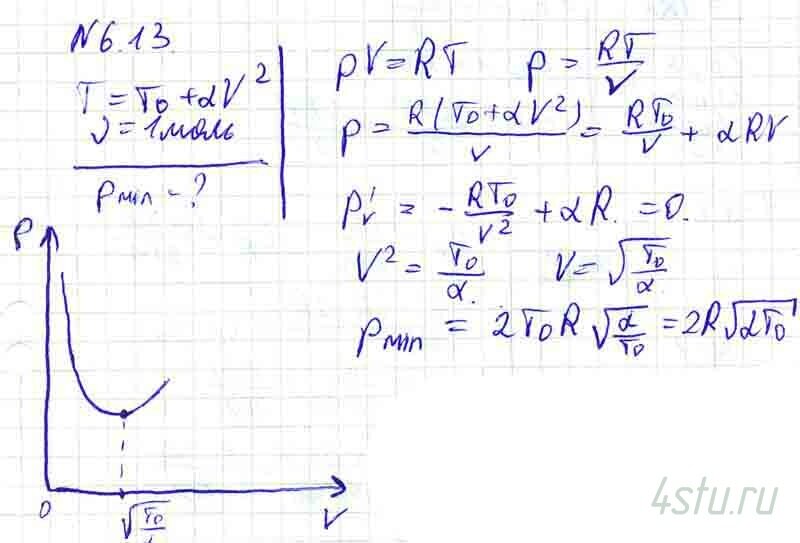 N 6.13.
T = T₀ + αV²
ν = 1 моль
Pmin - ?
pV = RT p = RT/V
p = R(T₀ + αV²)/V = RT₀/V + αRV
p'ᵥ = - RT₀/V² + αR. = 0.
V² = T₀/α. V = √(T₀/α.)
pmin = 2T₀R √(α/T₀) = 2R√(αT₀)
P
0
√(T₀/α)
V
4stu.ru